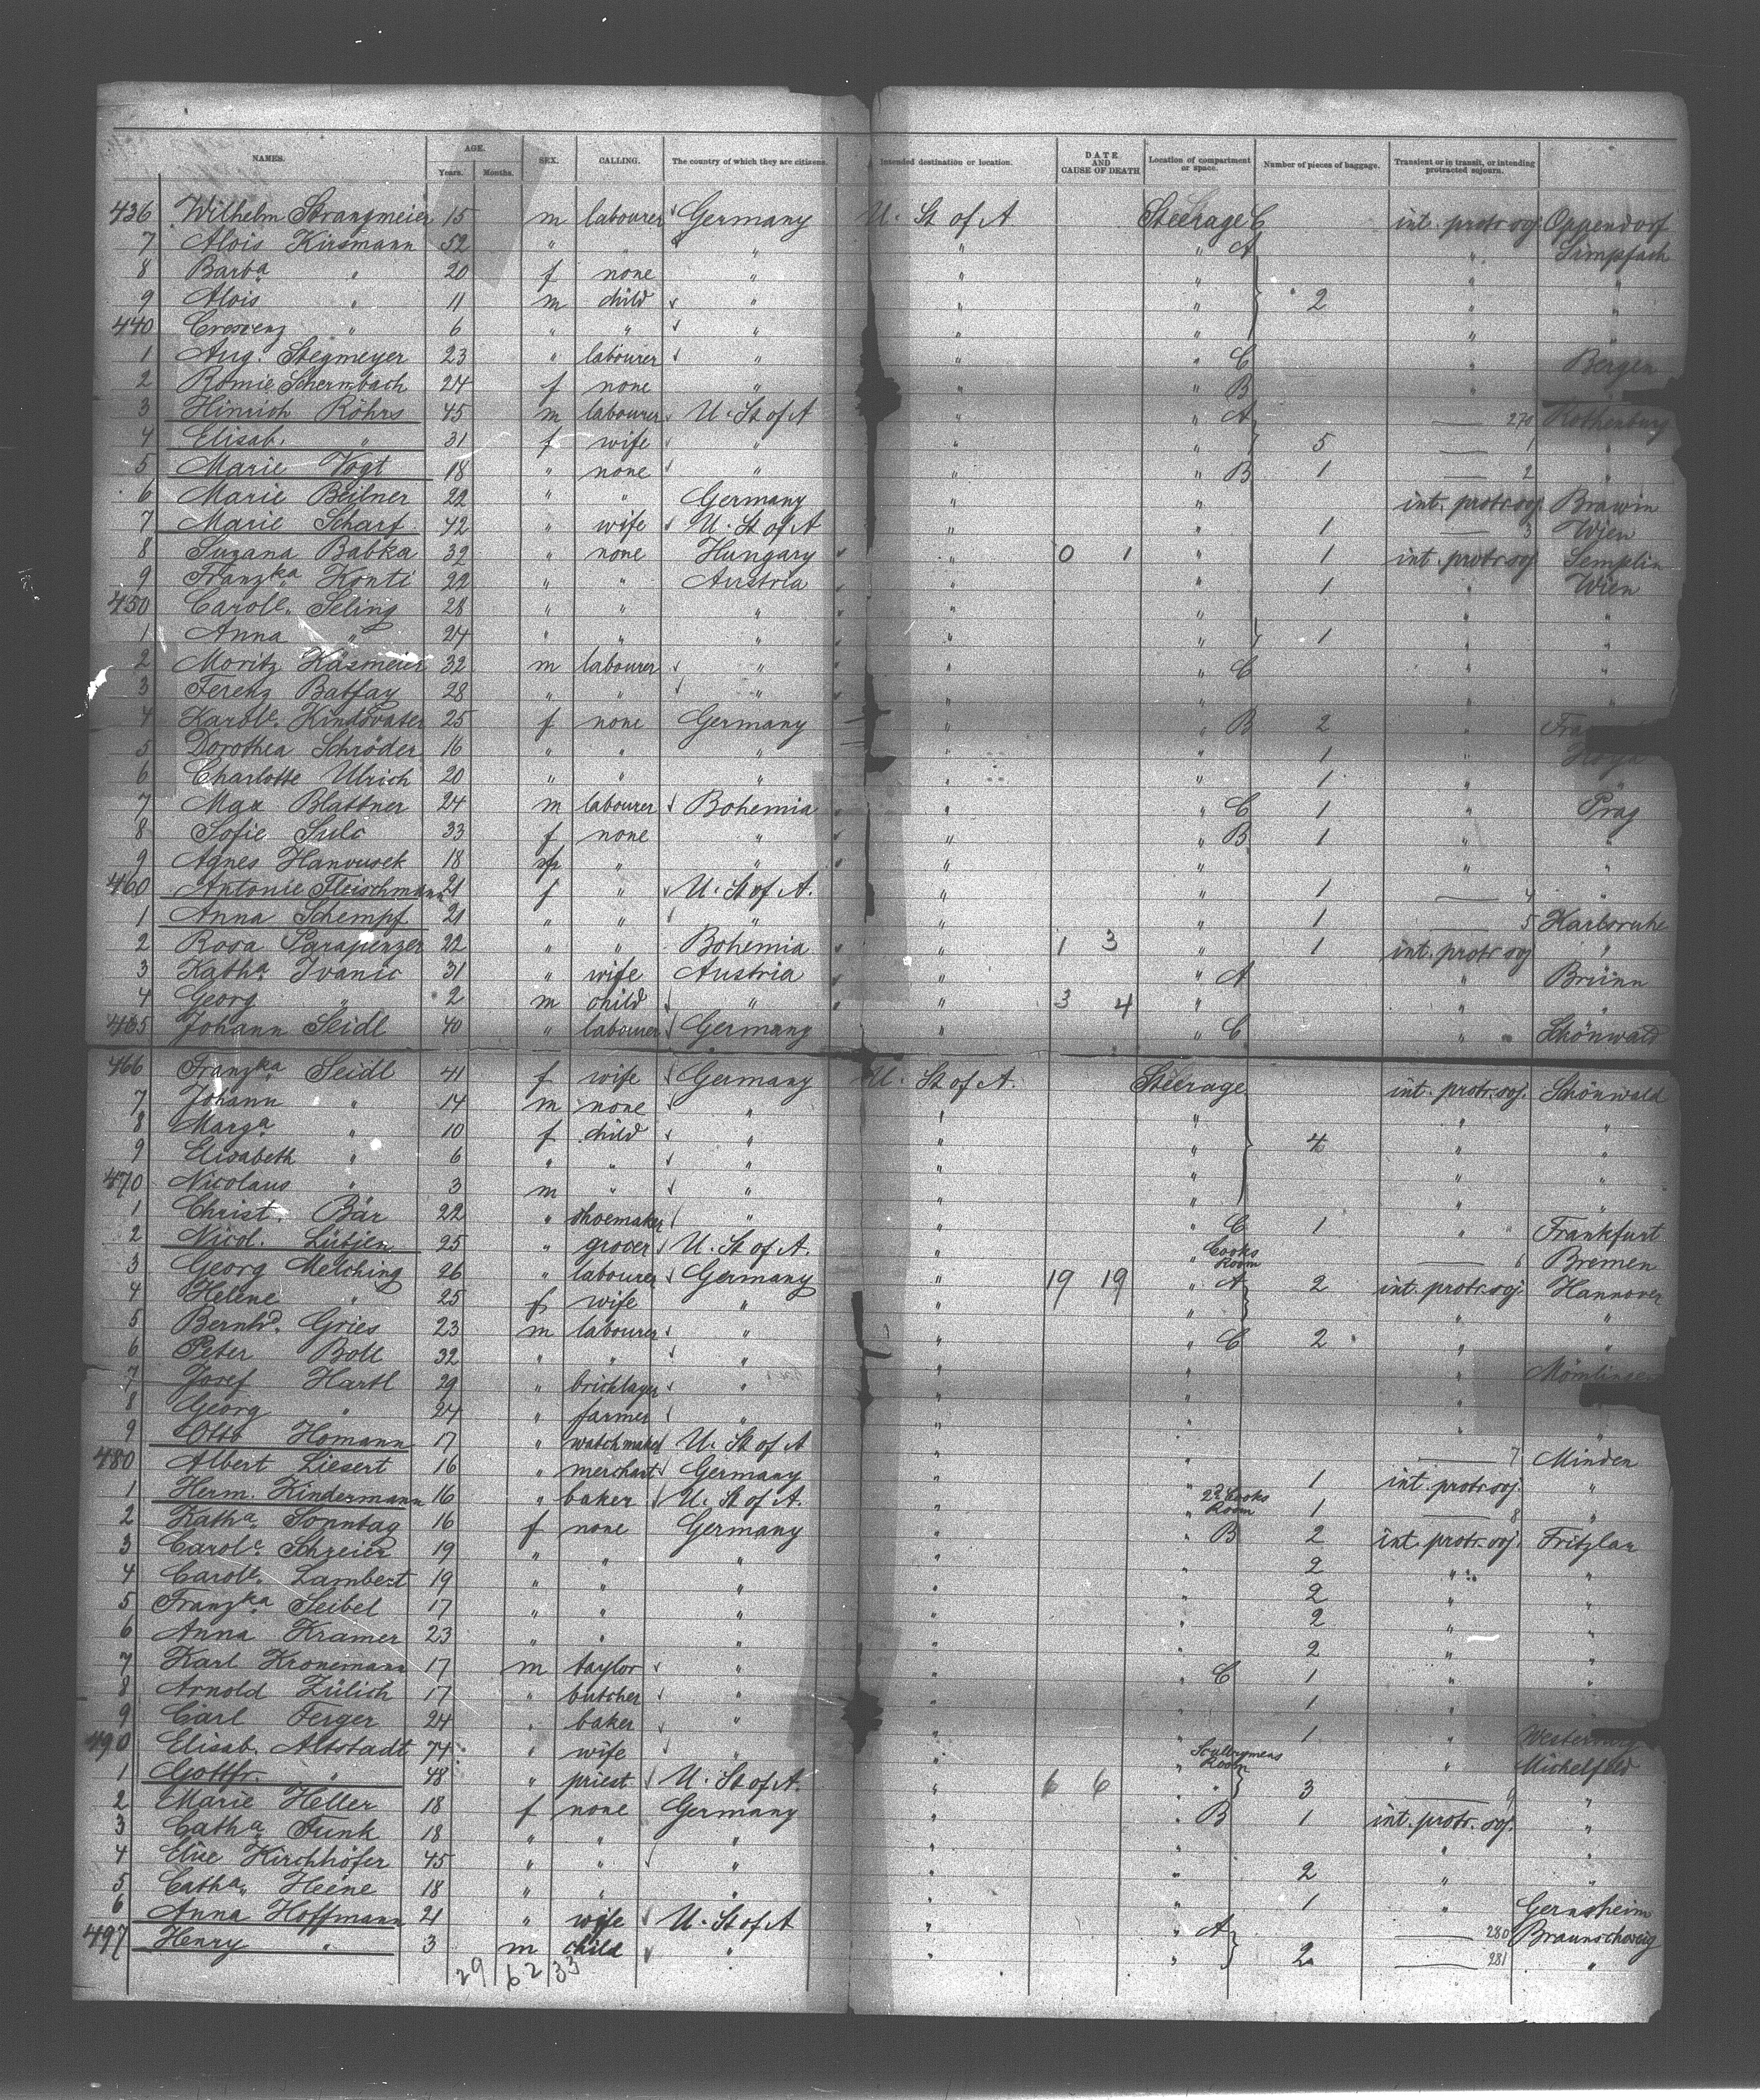 NAMES. AGE. Years. Months. SEX. CALLING. The country of which they are citizens. Intended destination or location. DATE AND CAUSE OF DEATH Location of compartment or space. Number of pieces of baggage. Transient or in transit, or intending protracted sojourn.
436 Wilhelm Strangmeier 15 m labourer Germany U. St of A Steerage C int. protr. soj. Oppendorf
7 Alois Kirsmann 52 " " " " " A " Simpfach
8 Barba " 20 f none " " " " "
9 Alois " 11 m child " " " 2 " "
440 Crescenz " 6 " " " " " " "
1 Aug. Stegmeyer 23 " labourer " " " C " Bergen
2 Romie Schernbach 24 f none " " " B " "
3 Hinrich Röhrs 45 m labourer U. St of A " " A 270 Rothenburg
4 Elisab. " 31 f wife " " " 5 1 "
5 Marie Vogt 18 " none " " " B 1 2 "
6 Marie Beilner 22 " " Germany " " int. protr. soj. Brawin
7 Marie Scharf 42 " wife U. St of A " " 1 3 Wien
8 Suzana Babka 32 " none Hungary " 0 1 " 1 int. protr. soj Semplin
9 Franzka Konti 22 " " Austria " " 1 " Wien
450 Carole. Seling 28 " " " " " " "
1 Anna " 24 " " " " " 1 " "
2 Moritz Käsmeier 32 m labourer " " " C " "
3 Ferenz Batfay 28 " " " " " " "
4 Karole. Kindsvater 25 f none Germany " " B 2 " Fra
5 Dorothea Schröder 16 " " " " " 1 " Hoya
6 Charlotte Ulrich 20 " " " " " 1 " "
7 Max Blattner 24 m labourer Bohemia " " C 1 " Prag
8 Sofie Sulc 33 f none " " " B 1 " "
9 Agnes Hanousek 18 " " " " " "
460 Antonie Fleischmann 21 f " U. St of A. " " 1 4 "
1 Anna Schempf 21 " " " " " 1 5 Karlsruhe
2 Rosa Paraperzer 22 " " Bohemia " 1 3 " 1 int. protr soj "
3 Katha Ivanic 31 " wife Austria " " A " Brünn
4 Georg " 2 m child " " 3 4 " " "
465 Johann Seidl 40 " labourer Germany " " C " Schönwald
466 Franzka Seidl 41 f wife Germany U. St of A. Steerage int. protr. soj. Schönwald
7 Johann " 14 m none " " " " "
8 Marga " 10 f child " " " 4 " "
9 Elisabeth " 6 " " " " " " "
470 Nicolaus " 3 m " " " " " "
1 Christ. Bär 22 " shoemaker " " " C 1 " Frankfurt
2 Nicol. Lütjen 25 " grocer U. St of A. " " Cooks Room 6 Bremen
3 Georg Melching 26 " labourer Germany " 19 19 " A 2 int. protr. soj. Hannover
4 Helene " 25 f wife " " " " "
5 Bernhd. Gries 23 m labourer " " " C 2 " "
6 Peter Boll 32 " " " " " " Mömlingen
7 Josef Hartl 29 " bricklayer " " " " "
8 Georg " 24 " farmer " " " " "
9 Otto Homann 17 " watchmaker U. St of A " " 7 Minden
480 Albert Liesert 16 " merchant Germany " " 1 int. protr. soj. "
1 Herm. Kindermann 16 " baker U. St of A. " " 2d Cooks Room 1 8 "
2 Katha Sonntag 16 f none Germany " " B 2 int. protr. soj. Fritzlar
3 Carole. Schreier 19 " " " " " 2 " "
4 Carole. Lambert 19 " " " " " 2 " "
5 Franzka Seibel 17 " " " " " 2 " "
6 Anna Kramer 23 " " " " " 2 " "
7 Karl Kronemann 17 m taylor " " " C 1 " "
8 Arnold Zülich 17 " butcher " " " 1 " "
9 Carl Ferger 24 " baker " " " 1 " Westerburg
490 Elisab. Altstadt 74 " wife " " " Scullrymens Room " Michelfeld
1 Gottfr. " 48 " priest U. St of A. " 6 6 " 3 9 "
2 Marie Heller 18 f none Germany " " B 1 int. protr. soj. "
3 Catha Funk 18 " " " " " " "
4 Elise Kirchhöfer 45 " " " " " 2 " "
5 Catha. Heene 18 " " " " " 1 " Gernsheim
6 Anna Hoffmann 21 " wife U. St of A " " A 280 Braunschweig
497 Henry " 3 m child " " " 2 281 "
29 62 33